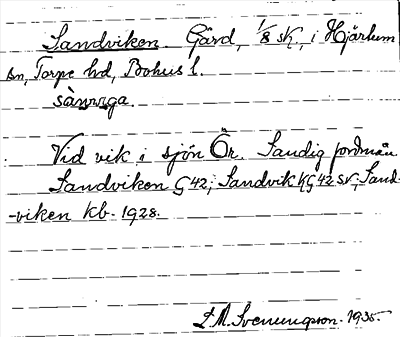 Sandviken. Gård, 1/8 sk., i Hjärtum
sn, Torpe hd, Bohus l.
Vid vik i sjön Ör. Sandig jordmån
Sandviken G 42; Sandvik KG 42 sv; Sand-
-viken kb. 1928.
S. M. Svenungson. 1935.